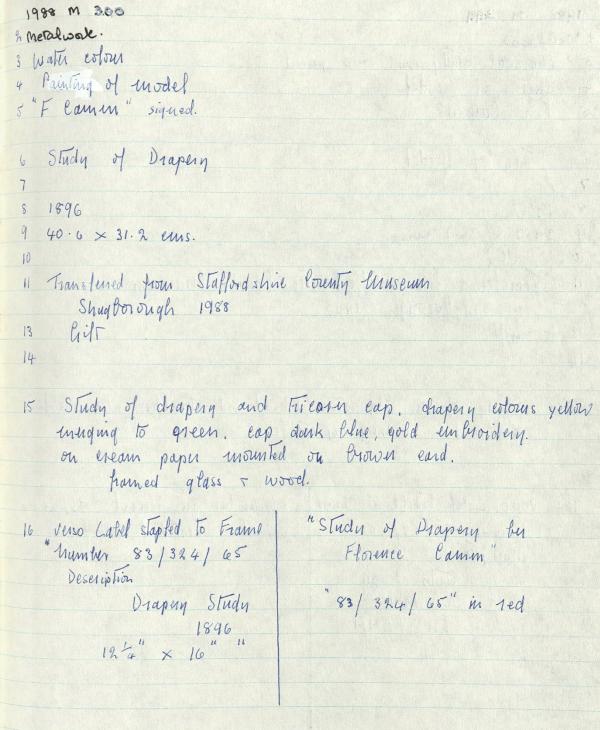 1988 M 300
2 Metalwork.
3 Water colour
4 Painting of model
5 "F Camm" signed.
6 Study of Drapery
7
8 1896
9 40.6 x 31.2 cms.
10
11 Transferred from Staffordshire County Museum
Shugborough 1988
13 Gift
14
15 Study of drapery and tricorn cap, drapery colours yellow
merging to green, cap dark blue, gold embroidery.
on cream paper mounted on brown card.
framed glass & wood.
16 verso Label stapled to Frame
"Number 83/324/65
Description
Drapery Study
1896
12 ¼" x 16" "
"Study of Drapery by
Florence Camm"
"83/324/65" in red